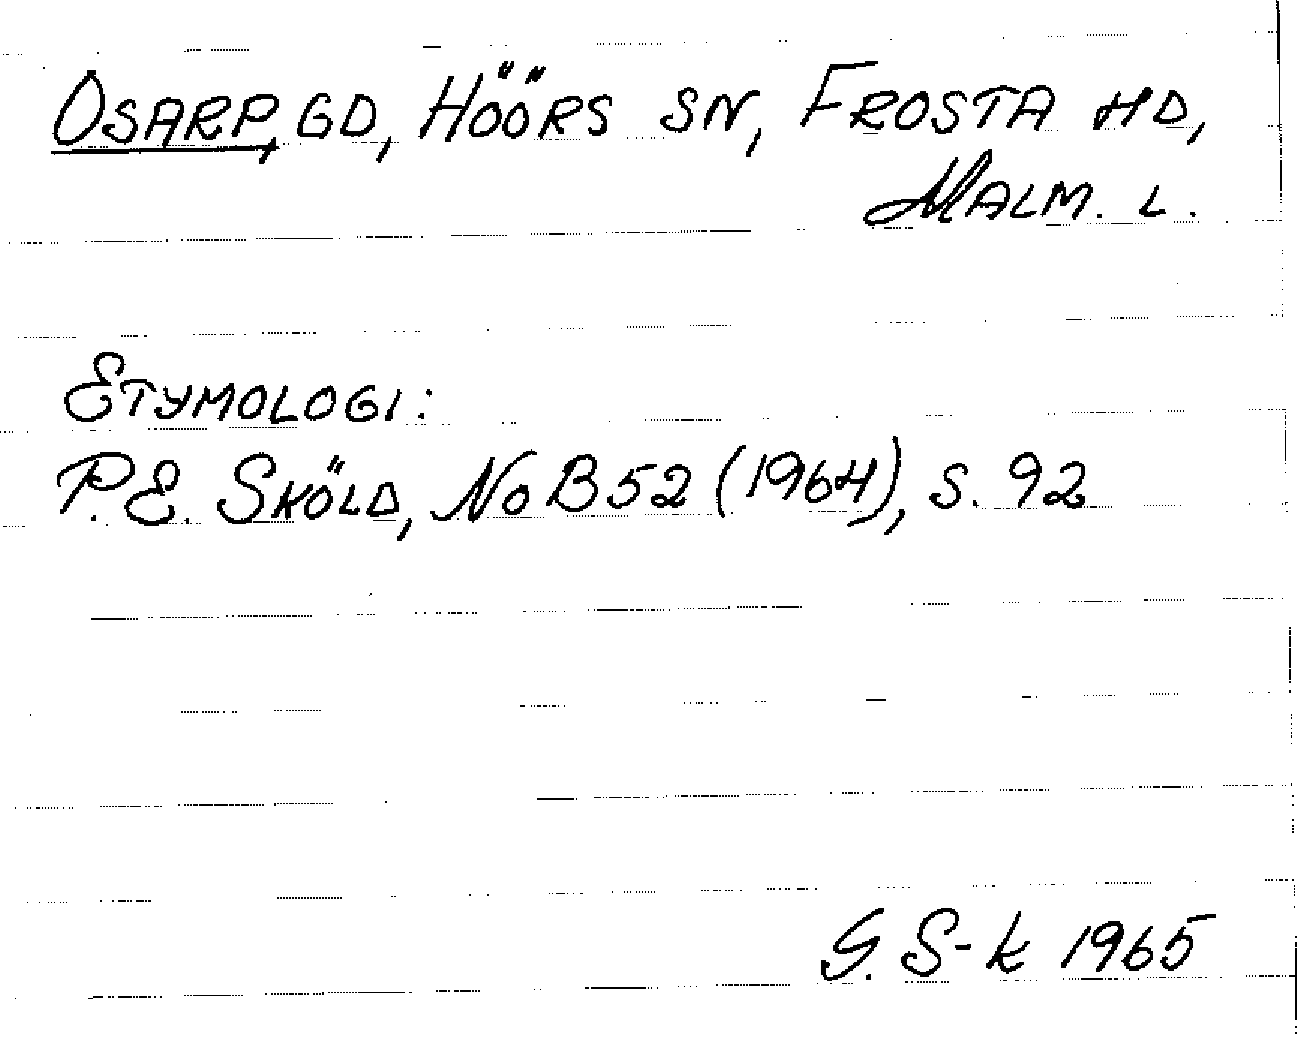 Osarp, gd, Höörs sn, Frosta hd,
Malm. l.
Etymologi:
P.E. Sköld, NoB 52 (1964), s. 92
G. S-k 1965